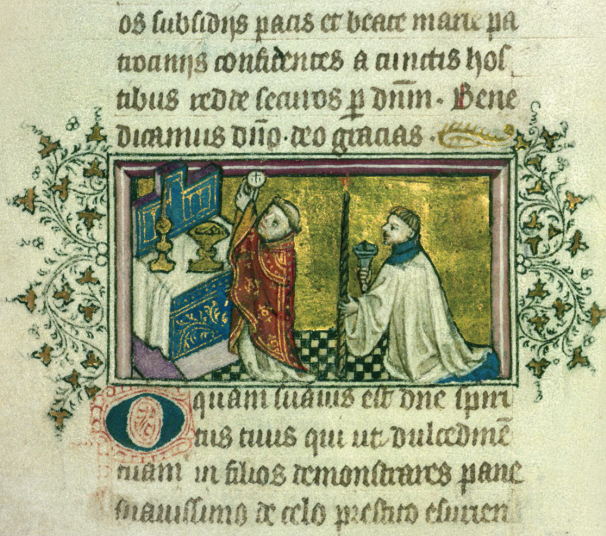 os subsidijs pacis et beate marie pa
trocinijs confidentes a cunctis hos
tibus redde securos p dnm. Bene
dicamus dno. deo gracias.
O quam suavis est dne spiri
tus tuus qui ut dulcedinē
tuam in filios demonstrares pane
suavissimo de celo prestito esurien